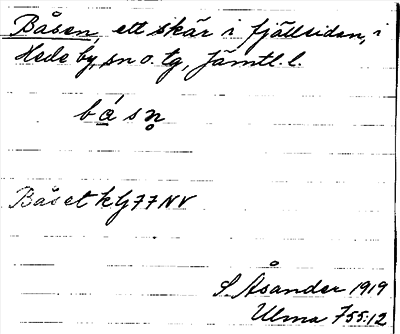 Båsen, ett skär i fjällsidan, i
Hede by, sn o. tg, Jämtl. l.
bá̱sn̥
Båset kG77NV
S Åsander 1919
Ulma 755:12